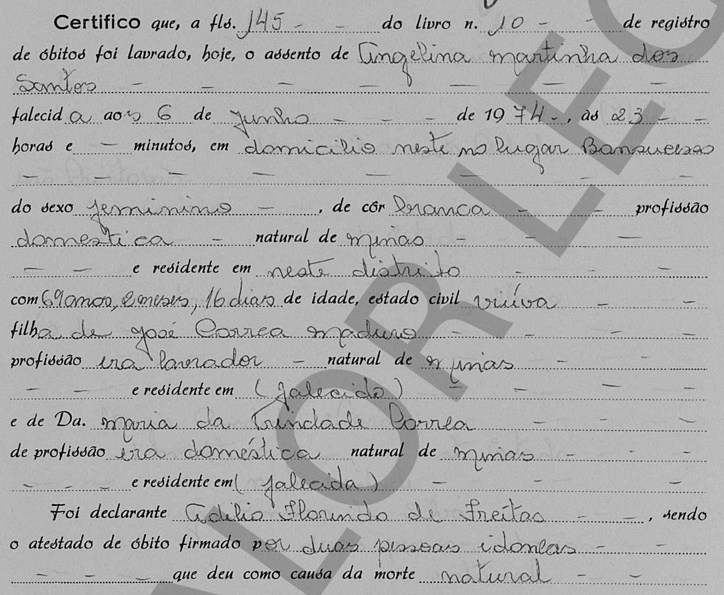 Certifico que, a fls. 145 - - do livro n. 10 - - de registro
de óbitos foi lavrado, hoje, o assento de Angelina martinha dos
Santos - - - - - - - -
falecida aos 6 de junho - - - de 1974 -, às 23 - -
horas e - minutos, em domicilio neste no lugar Bonsucesso
- - - - - - - -
do sexo feminino -, de côr branca - - profissão
domestica - natural de minas - - - -
- - e residente em neste distrito - - -
com 69 anos, 2 meses, 16 dias de idade, estado civil viúva - -
filha de José Correa maduro - - - -
profissão era lavrador - natural de minas - - -
- - e residente em (falecido) - - - -
e de Da. maria da Trindade Correa - - -
de profissão era doméstica natural de minas - - -
- - - e residente em (falecida) - - - - -
Foi declarante Adelio Florindo de Freitas - -, sendo
o atestado de óbito firmado por duas pessoas idoneas - -
- - - que deu como causa da morte natural - -
VALOR LEG